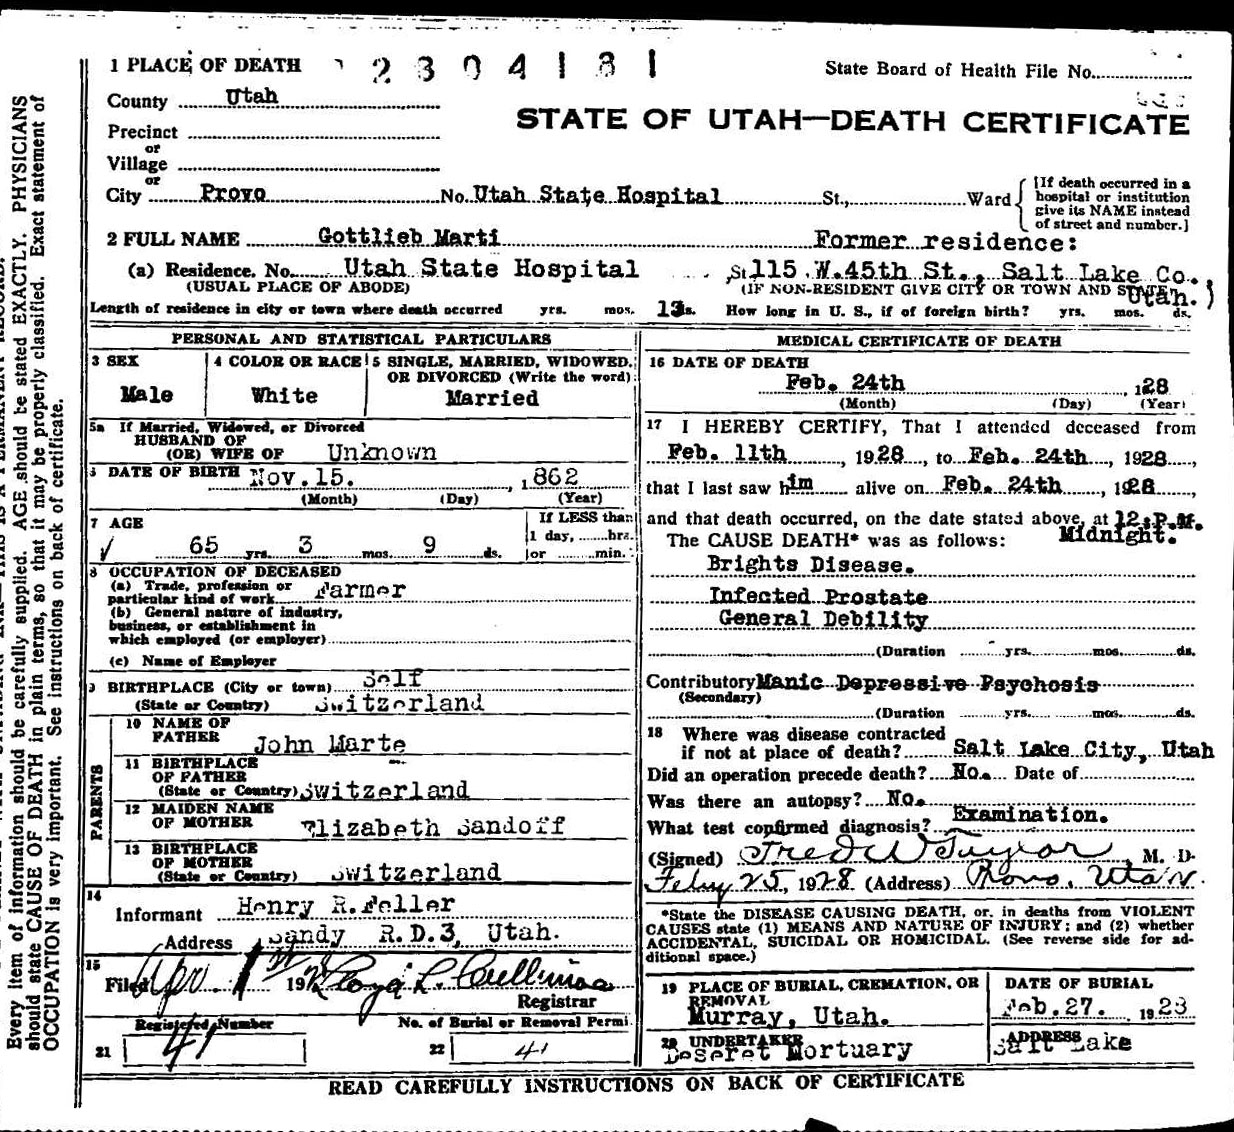 1 PLACE OF DEATH 2304181
State Board of Health File No.
County Utah
STATE OF UTAH—DEATH CERTIFICATE
Precinct
or
Village
or
City Provo No. Utah State Hospital St., Ward
[If death occurred in a
hospital or institution
give its NAME instead
of street and number.]
2 FULL NAME Gottlieb Marti Former residence:
(a) Residence. No. Utah State Hospital St. 115 W.45th St., Salt Lake Co.,
(USUAL PLACE OF ABODE) (IF NON-RESIDENT GIVE CITY OR TOWN AND STATE
Utah.)
Length of residence in city or town where death occurred yrs. mos. 13 ds. How long in U. S., if of foreign birth? yrs. mos. ds.
PERSONAL AND STATISTICAL PARTICULARS
3 SEX
Male
4 COLOR OR RACE
White
5 SINGLE, MARRIED, WIDOWED,
OR DIVORCED (Write the word)
Married
5a If Married, Widowed, or Divorced
HUSBAND OF
(OR) WIFE OF Unknown
6 DATE OF BIRTH Nov. 15. 1862
(Month) (Day) (Year)
7 AGE
65 yrs. 3 mos. 9 ds.
If LESS than
1 day, hrs.
or min.
8 OCCUPATION OF DECEASED
(a) Trade, profession or
particular kind of work Farmer
(b) General nature of industry,
business, or establishment in
which employed (or employer)
(c) Name of Employer
Self
9 BIRTHPLACE (City or town)
(State or Country) Switzerland
PARENTS
10 NAME OF
FATHER John Marte
11 BIRTHPLACE
OF FATHER
(State or Country) Switzerland
12 MAIDEN NAME
OF MOTHER Elizabeth Sandoff
13 BIRTHPLACE
OF MOTHER
(State or Country) Switzerland
14
Informant Henry R. Feller
Address Sandy R.D.3, Utah.
15
Filed Apr. 1st 192 Lloyd L. Cullimore
Registrar
Registered Number
21 41
No. of Burial or Removal Permi
22 41
MEDICAL CERTIFICATE OF DEATH
16 DATE OF DEATH
Feb. 24th , 128
(Month) (Day) (Year)
17 I HEREBY CERTIFY, That I attended deceased from
Feb. 11th , 1928 , to Feb. 24th , 1928 ,
that I last saw him alive on Feb. 24th , 1928 ,
and that death occurred, on the date stated above, at 12:P.M.
Midnight.
The CAUSE DEATH* was as follows:
Brights Disease.
Infected Prostate
General Debility
(Duration yrs. mos. ds.
Contributory Manic Depressive Psychosis
(Secondary)
(Duration yrs. mos. ds.
18 Where was disease contracted
if not at place of death? Salt Lake City, Utah
Did an operation precede death? No. Date of
Was there an autopsy? No.
What test confirmed diagnosis? Examination.
(Signed) Fred W Taylor , M. D.
Feby 25, 1928 (Address) Provo, Utah.
*State the DISEASE CAUSING DEATH, or, in deaths from VIOLENT
CAUSES state (1) MEANS AND NATURE OF INJURY; and (2) whether
ACCIDENTAL, SUICIDAL OR HOMICIDAL. (See reverse side for ad-
ditional space.)
19 PLACE OF BURIAL, CREMATION, OR
REMOVAL
Murray, Utah.
DATE OF BURIAL
Feb. 27. 1928
20 UNDERTAKER
Deseret Mortuary
ADDRESS
Salt Lake
READ CAREFULLY INSTRUCTIONS ON BACK OF CERTIFICATE
Every item of information should be carefully supplied. AGE should be stated EXACTLY. PHYSICIANS
should state CAUSE OF DEATH in plain terms, so that it may be properly classified. Exact statement of
OCCUPATION is very important. See instructions on back of certificate.